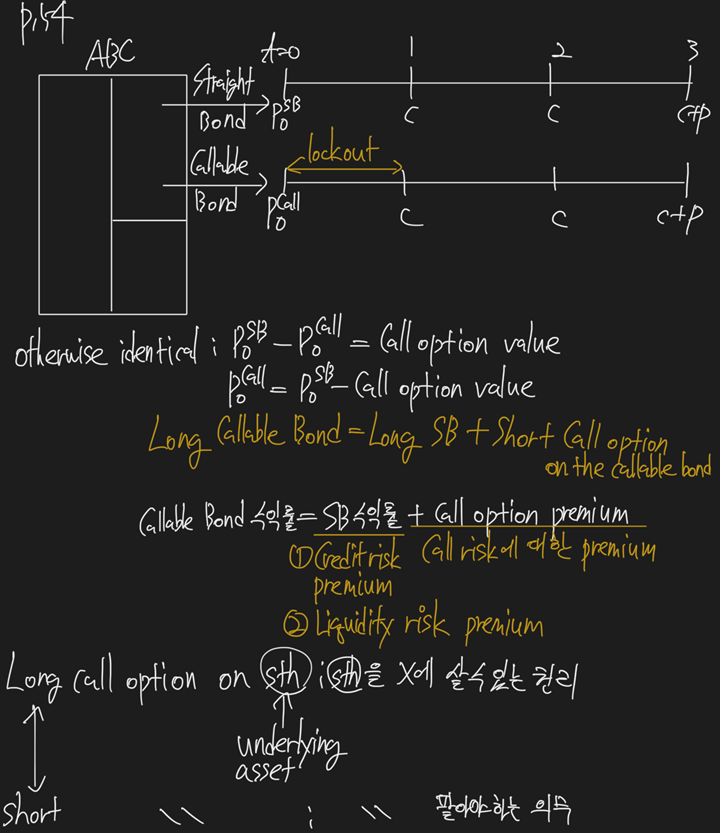 p.154
ABC
Straight
Bond
t=0 1 2 3
P₀^SB C C C+P
Callable
Bond
lockout
P₀^Call C C C+P
otherwise identical ; P₀^SB - P₀^Call = Call option value
P₀^Call = P₀^SB - Call option value
Long Callable Bond = Long SB + Short Call option
on the callable bond
Callable Bond 수익률 = SB 수익률 + Call option premium
① Credit risk premium
Call risk에 대한 premium
② Liquidity risk premium
Long Call option on sth ; sth을 X에 살 수 있는 권리
underlying
asset
short \\ ; \\ 팔아야하는 의무